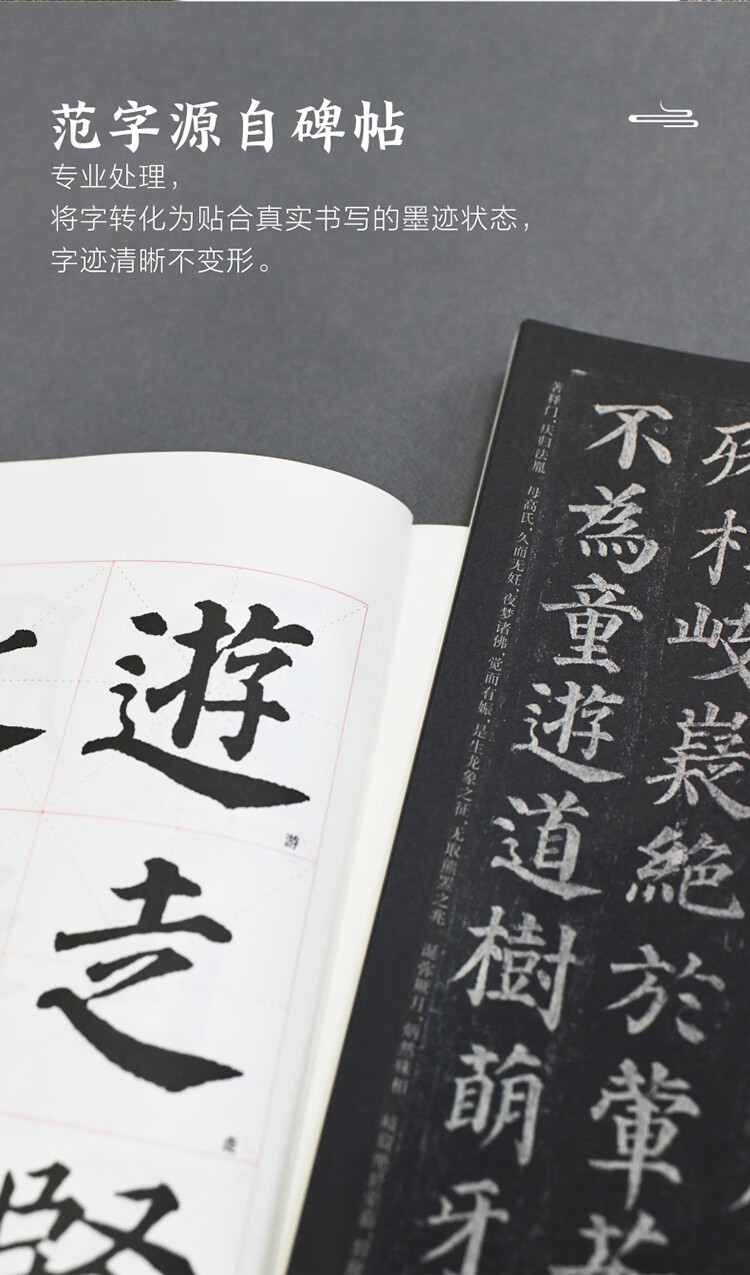 范字源自碑帖
专业处理，
将字转化为贴合真实书写的墨迹状态，
字迹清晰不变形。
遊
游
走
走
不為童遊道樹萌牙
岐嶷絶於葷
著释门，庆归法胤。母高氏，久而无妊，夜梦诸佛，觉而有娠，是生龙象之征，无取熊罴之兆。诞弥厥月，炳然殊相